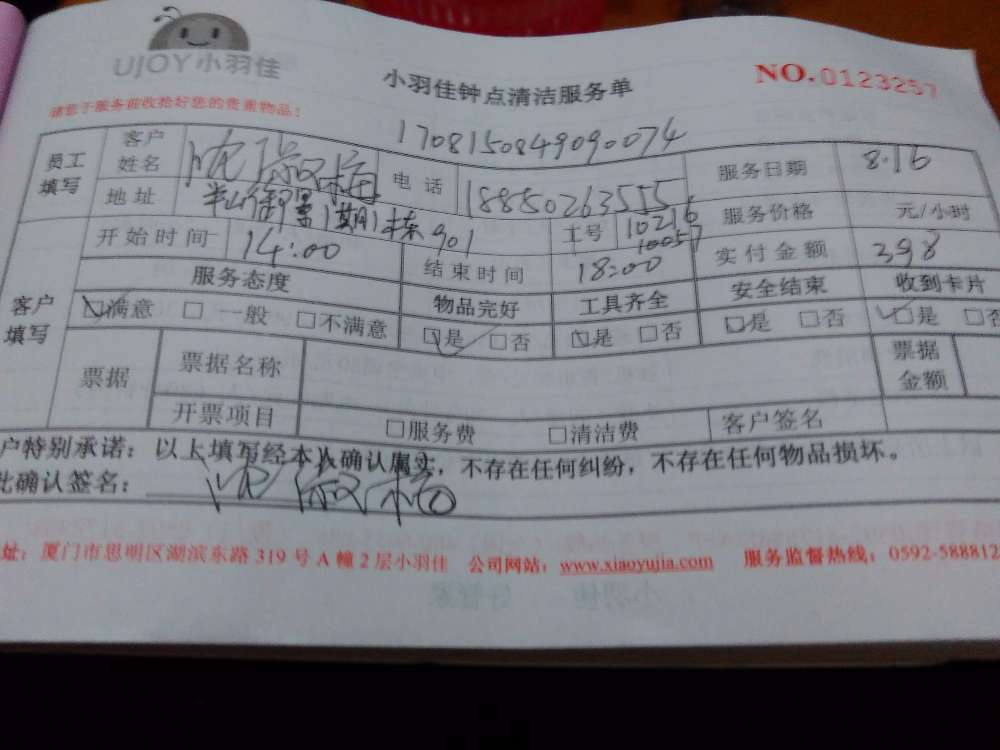 UJOY小羽佳
小羽佳钟点清洁服务单
NO.0123257
请您于服务前收拾好您的贵重物品!
1708150849090074
员工填写 客户姓名 电话 18850263555 服务日期 8.16
地址 半山御景1期1栋901 工号 10216 10057 服务价格 元/小时
客户填写 开始时间 14:00 结束时间 18:00 实付金额 398
服务态度 物品完好 工具齐全 安全结束 收到卡片
□满意 □一般 □不满意 □是 □否 □是 □否 □是 □否 □是 □否
票据 票据名称 票据金额
开票项目 □服务费 □清洁费 客户签名
户特别承诺:以上填写经本人确认属实,不存在任何纠纷,不存在任何物品损坏。
此确认签名:
址:厦门市思明区湖滨东路 319 号 A 幢 2 层小羽佳 公司网站:www.xiaoyujia.com 服务监督热线:0592-588812